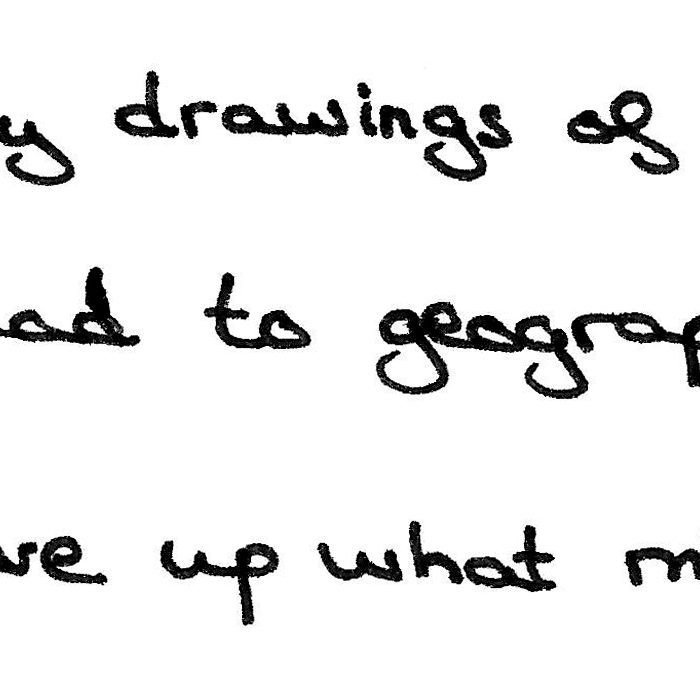 y drawings of
ad to geograp
ve up what m